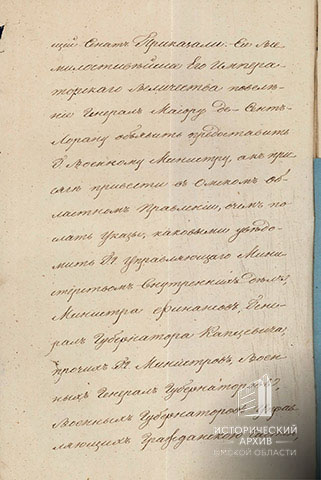 щій Сенатъ Приказали: Сіе Все
милостивѣйшее Его Импера
торскаго Величества повелѣ
ніе Генералъ Маіору де Сентъ-
Лорану объявить предоставить
Г. Военному Министру, а къ при
сягѣ привести въ Омскомъ об
ластномъ Правленіи, о чемъ по
слать Указы, каковыми увѣдо
мить Г. Управляющаго Мини
стерствомъ Внутреннихъ дѣлъ,
Министра Финансовъ, Гене
ралъ Губернатора Капцевича,
прочихъ Гг. Министровъ, Воен
ныхъ Генералъ Губернаторовъ,
Военныхъ Губернаторовъ Управ
ляющихъ Гражданскою
ИСТОРИЧЕСКИЙ
АРХИВ
ОМСКОЙ ОБЛАСТИ